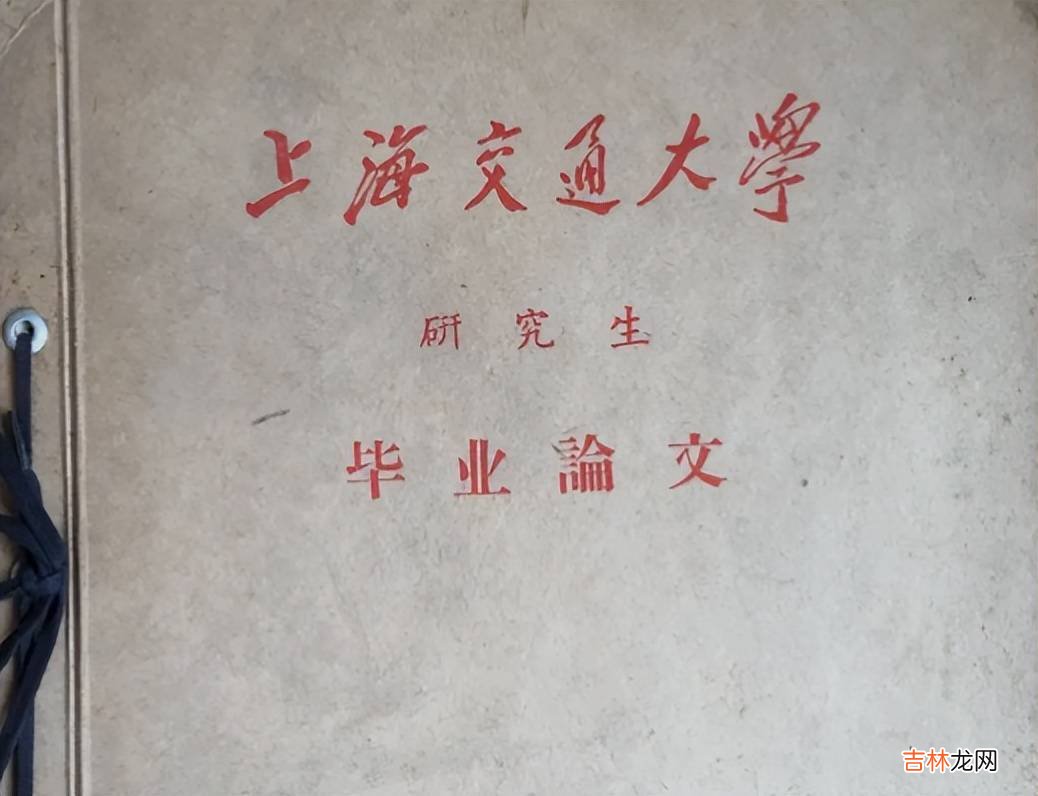 上海交通大學
研究生
毕业論文
吉林龙网